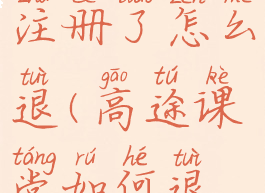 注册了怎么
tuì gāo tú kè
退(高途课
táng rú hé tuì
堂如何退